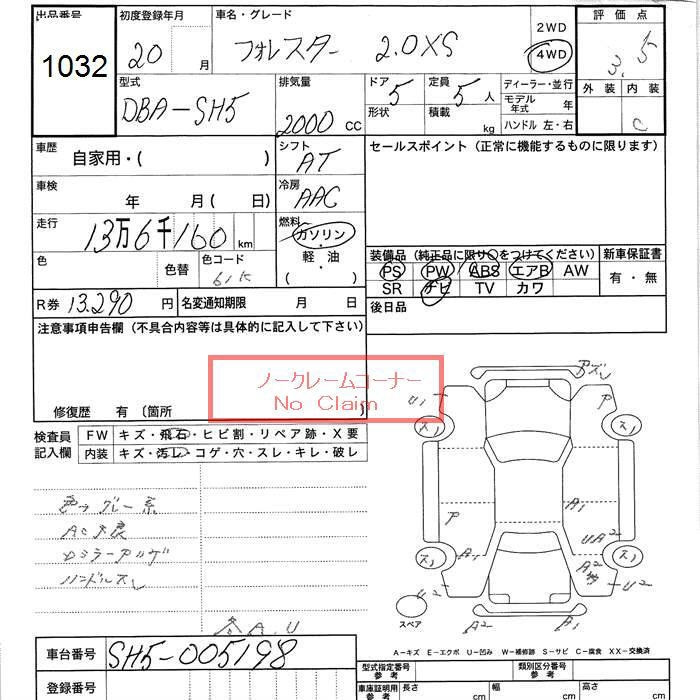 出品番号 初度登録年月 車名・グレード 2WD 評価点
1032 20 月 フォレスター 2.0XS 4WD 3.5
型式 排気量 ドア 定員 ディーラー・並行 外装 内装
DBA-SH5 2000 cc 5 5 人 モデル年式 年 C
形状 積載 kg ハンドル 左・右
車歴 自家用・( ) シフト AT セールスポイント(正常に機能するものに限ります)
車検 年 月( 日) 冷房 AAC
走行 13万6千160 km 燃料 ガソリン
軽・油
( ・ )
色 色替 色コード 61K
装備品(純正品に限り○をつけてください) 新車保証書
PS PW ABS エアB AW 有・無
SR ナビ TV カワ
R券 13.290 円 名変通知期限 月 日 後日品
注意事項申告欄(不具合内容等は具体的に記入して下さい)
ノークレームコーナー
No Claim
修復歴 有(箇所 )
検査員記入欄 FW キズ・飛石・ヒビ割・リペア跡・X要
内装 キズ・汚レ・コゲ・穴・スレ・キレ・破レ
AC不良
ハンドルスレ
A.U
U1 ア ス1 ス1
ア A1 UA2
ス1 A1 A2 ス1
U2 U2
スペア A2 A1
A-キズ E-エクボ U-凹み W-補修跡 S-サビ C-腐食 XX-交換済
車台番号 SH5-005198
型式指定番号 類別区分番号
登録番号 車庫証明用 長さ cm 幅 cm 高さ cm